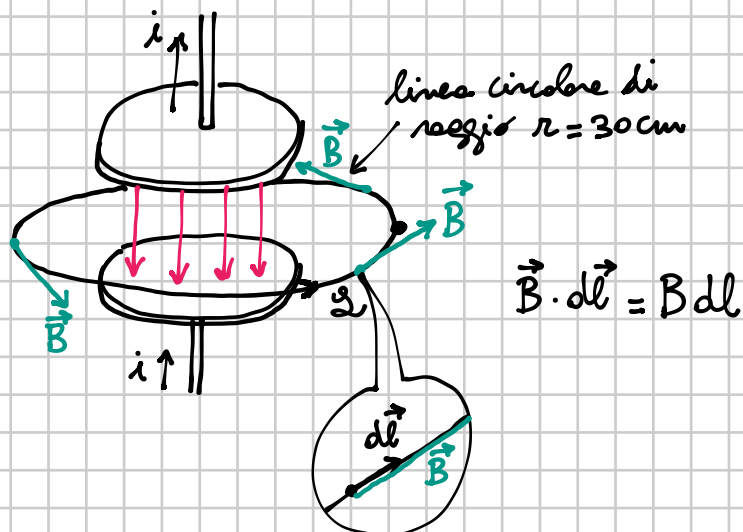 i
linea circolare di
raggio r = 30 cm
B⃗
B⃗
B⃗
B⃗ · dl⃗ = B dl
L
i
dl⃗
B⃗